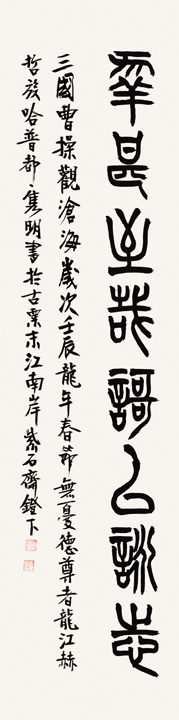 幸甚至哉謌以詠志
三國曹操觀滄海歲次壬辰龍年春節無憂德尊者龍江赫
哲族哈普都·雋明書於古粟末江南岸紫石齋鐙下